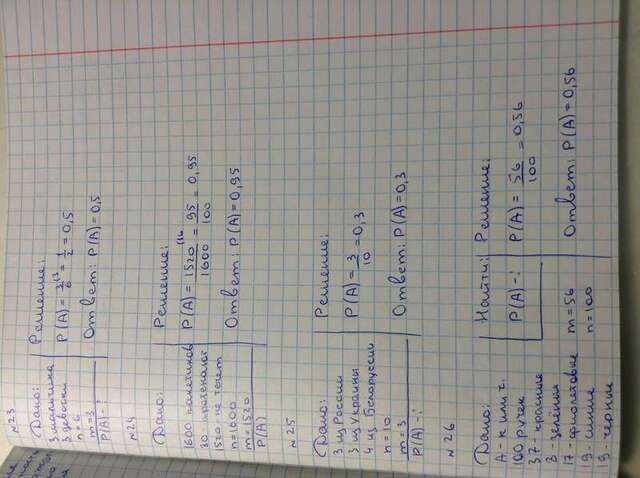 №23
Дано:
3 мальчика
3 девочки
n = 6
m = 3
P(A) - ?
Решение:
P(A) = 3/6 (3 = 1/2 = 0,5
Ответ: P(A) = 0,5
№24
Дано:
1600 пакетиков
80 - протекают
1520 - не текут
n = 1600
m = 1520
P(A)
Решение:
P(A) = 1520/1600 (16 = 95/100 = 0,95
Ответ: P(A) = 0,95
№25
Дано:
3 из России
3 из Украины
4 из Белоруссии
n = 10
m = 3
P(A) - ?
Решение:
P(A) = 3/10 = 0,3
Ответ: P(A) = 0,3
№26
Дано:
A - к или ч.
100 ручек
37 - красные
8 - зелёные
17 - фиолетовые
19 - синие
19 - черные
Найти:
P(A) - ?
m = 56
n = 100
Решение:
P(A) = 56/100 = 0,56
Ответ: P(A) = 0,56